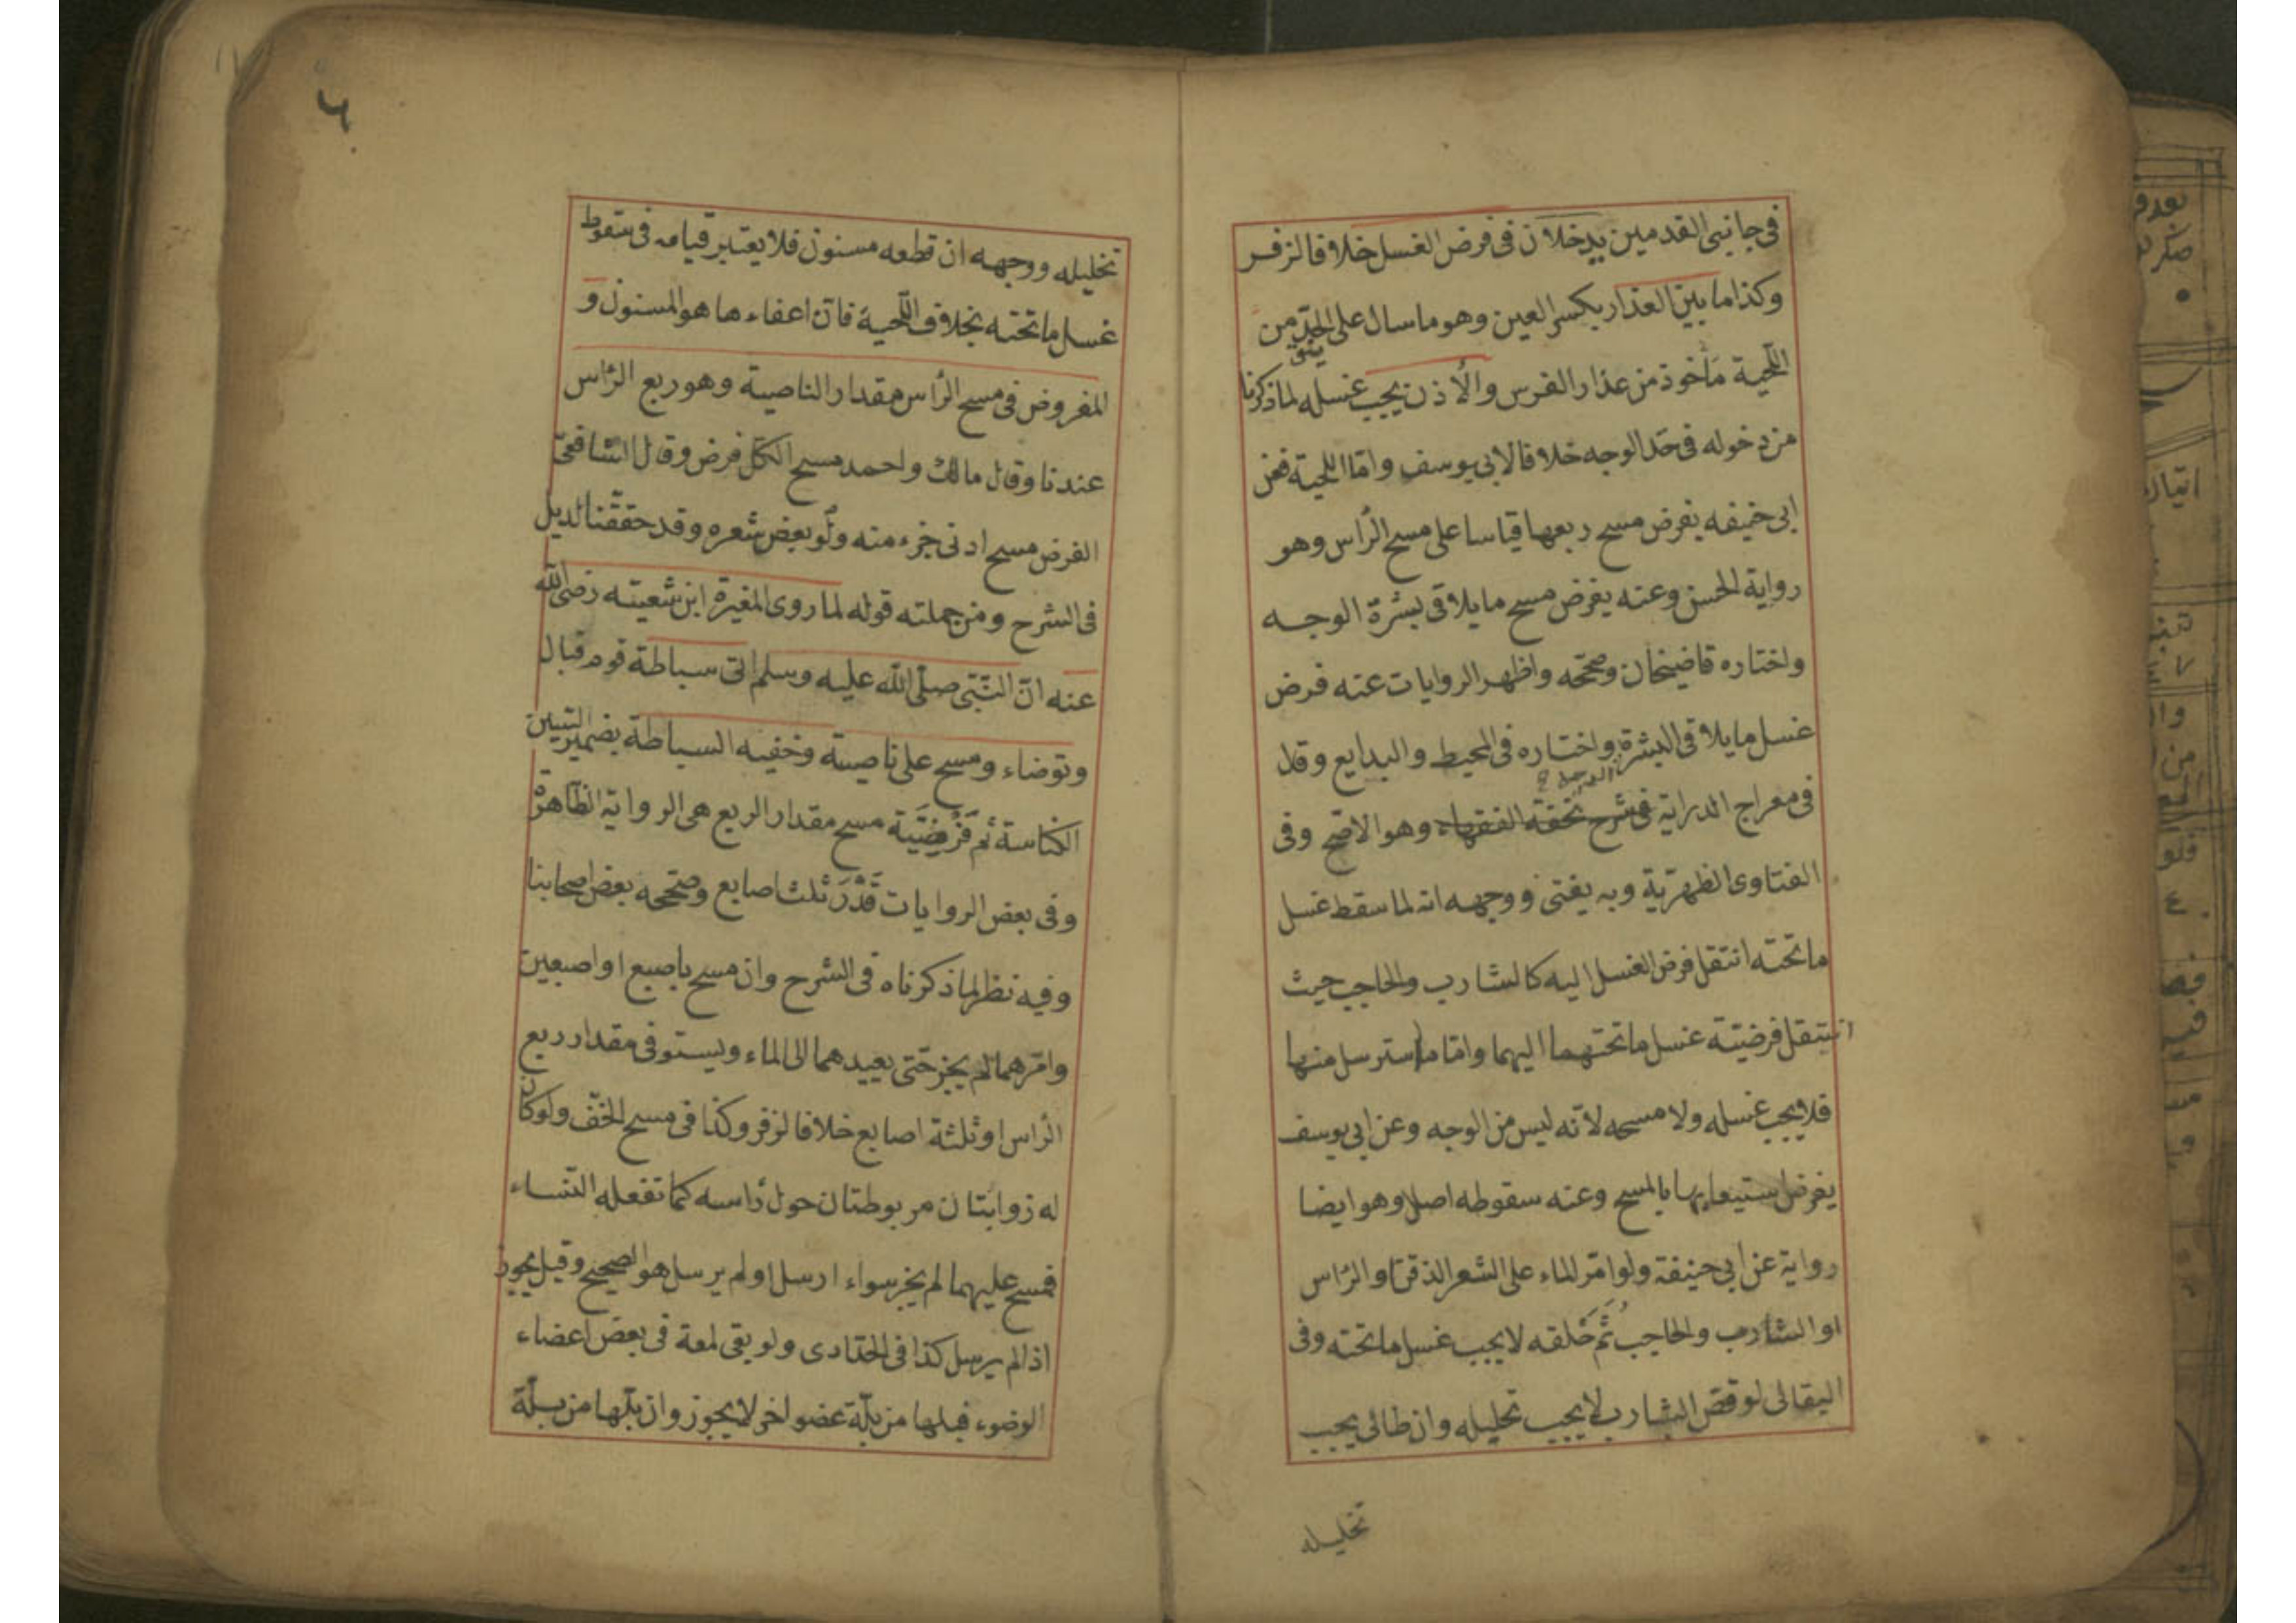 فى جانبى القدمين يدخلان فى فرض الغسل خلافا لزفر
وكذا ما بين العذار بكسر العين وهو ما سال على الخدّ من
اللّحية مأخوذ من عذار الفرس والأذن يجب غسله لما ذكرنا
من دخوله فى حَد الوجه خلافا لابى يوسف وامّا اللحية فعن
ابى حنيفه يفرض مسح ربعها قياسا على مسح الرأس وهو
رواية الحسن وعنه يفرض مسح ما يلاقى بشرة الوجه
واختاره قاضيخان وصحّحه واظهر الروايات عنه فرض
غسل ما يلاقى البشرة واختاره فى المحيط والبدايع وقال
فى معراج الدراية فى شرح تحفة الفقهاء وهو الاصّح وفى
الفتاوى الظهريّة وبه يفتى ووجهه انه لما سقط غسل
ما تحته انتقل فرض الغسل اليه كالشارب والحاجب حيث
انتقل فرضيّة غسل ما تحتهما اليهما وامّا ما استرسل منها
فلا يجب غسله ولا مسحه لانّه ليس من الوجه وعن ابى يوسف
يفرض استيعابها بالمسح وعنه سقوطه اصلا وهو ايضا
رواية عن ابى حنيفة ولو امّر الماء على الشعر الذقن او الرّاس
او الشارب والحاجب ثُمَّ حَلقه لا يجب غسل ما تحته وفى
البقالى لو قصّ الشارب لا يجب تخليله وان طال يجب
تخليله
٦
تخليله ووجهه ان قطعه مسنون فلا يعتبر قيامه فى سقوط
غسل ما تحته بخلاف اللّحية فانّ اعفاءها هو المسنون و
المفروض فى مسح الرأس مقدار الناصية وهو ربع الرّاس
عندنا وقال مالك واحمد مسح الكلّ فرض وقال الشافعىّ
الفرض مسح ادنى جزء منه ولو بعض شعره وقد حققّنا لديل
فى الشرح ومن جملته قوله لما روى المغيرة ابن شعيته رضى الله
عنه انّ النّبّى صلّى الله عليه وسلم اتى سباطة قوم فبال
وتوضاء ومسح على ناصيته وخفيه السباطة بضم
الكناسة ثم فَرْضيَّة مسح مقدار الربع هى الرواية الظّاهرة
وفى بعض الروايات قَدْرَ ثلث اصابع وصّححه بعض اصحابنا
وفيه نظر لما ذكرناه فى الشرح وان مسح باصبع او اصبعين
وامّرهما لم يجز حتّى يعيدهما الى الماء ويستوفى مقدار ربع
الرأس او ثلثة اصابع خلافا لزفر وكذا فى مسح الخفّ ولو كان
له زوابتان مربوطتان حول رأسه كما تفعله النّساء
فمسح عليهما لم يجز سواء ارسل او لم يرسل هو الصحيح وقيل يجوز
اذا لم يرسل كذا فى الحدّادى ولو بقى لمعة فى بعض اعضاء
الوضوء فبلها من بلّة عضو اخر لا يجوز وان بلّها من بلّة